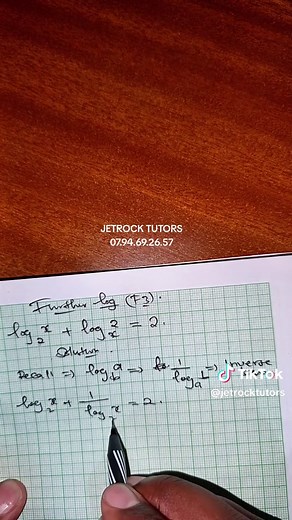 JETROCK TUTORS
07.94.69.26.57
Further log (F3).
log₂ x + logₓ 2 = 2.
Solution
Recall => log_b a => 1/log_a b => inverse
log₂ x + 1/log₂ x = 2.
TikTok
@jetrocktutors